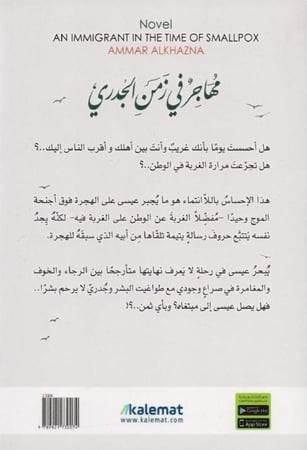 Novel
AN IMMIGRANT IN THE TIME OF SMALLPOX
AMMAR ALKHAZNA
مُهاجِرٌ في زَمنِ الجُدري
هل أحسستَ يومًا بأنك غريبٌ وأنتَ بين أهلك و أقرب الناس إليك..؟
هل تجرّعتَ مرارة الغربة في الوطن..؟
هذا الإحساسُ باللاّانتماء هو ما يُجبر عيسى على الهجرة فوق أجنحة
الموج وحيدًا -مُفضِّلاً الغربة عن الوطن على الغربة فيه- لكنّه يجدُ
نفسه يَتتبّع حروف رسالةٍ يتيمة تلقّاها مِن أبيه الذي سبقَهُ للهجرة.
يُبحرُ عيسى في رحلةٍ لا يَعرف نهايتها متأرجحًا بين الرجاء والخوف
والمغامرة في صراعٍ وجودي مع طواغيت البشر وجُدريٍّ لا يرحم بشرًا..
فهل يصل عيسى إلى مبتغاه؟ وبأي ثمن..؟!
kalemat
www.kalemat.com
Google play
App Store